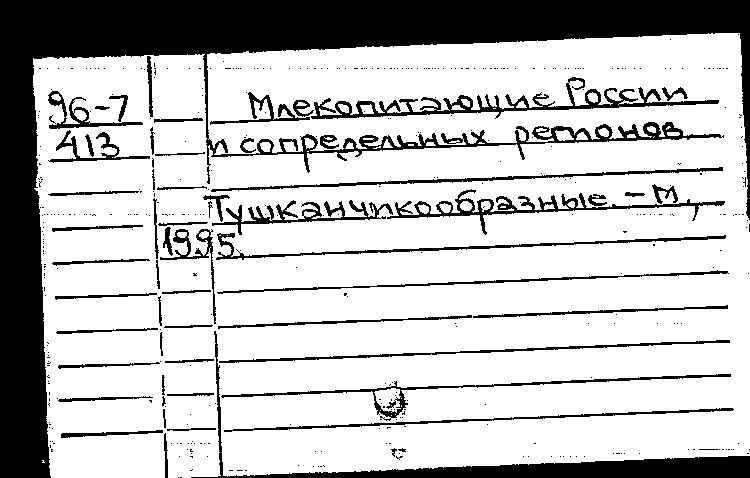 96-7 Млекопитающие России
413 и сопредельных регионов.
Тушканчикообразные. - М.,
1995.